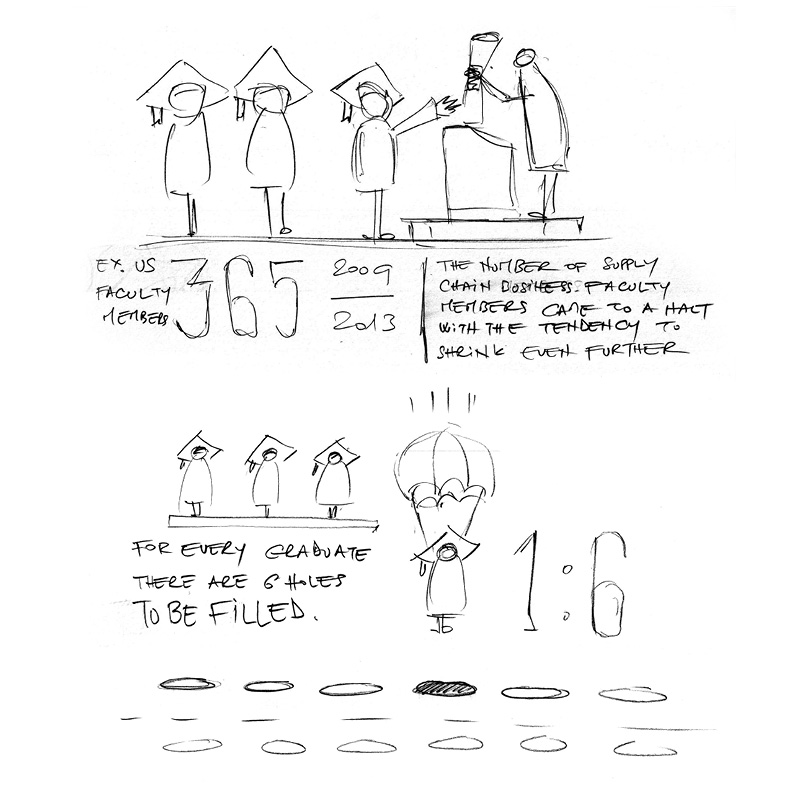 EX. US
FACULTY
MEMBERS
365
2009
2013
THE NUMBER OF SUPPLY
CHAIN BUSINESS FACULTY
MEMBERS CAME TO A HALT
WITH THE TENDENCY TO
SHRINK EVEN FURTHER
FOR EVERY GRADUATE
THERE ARE 6 HOLES
TO BE FILLED.
1:6